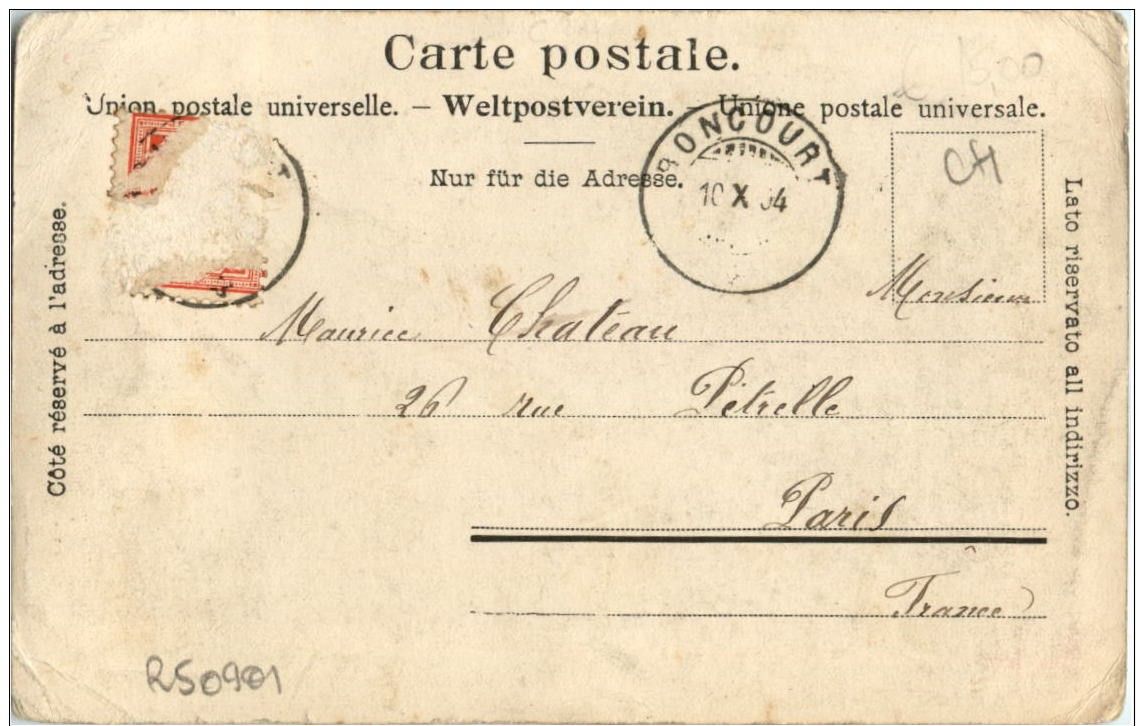 Carte postale.
Union postale universelle. – Weltpostverein. – Unione postale universale.
Nur für die Adresse.
BONCOURT
10 X 04
CH
15,00
Côté réservé à l'adresse.
Lato riservato all indirizzo.
Monsieur
Maurice Chateau
26 rue Pétrelle
Paris
France
R50901